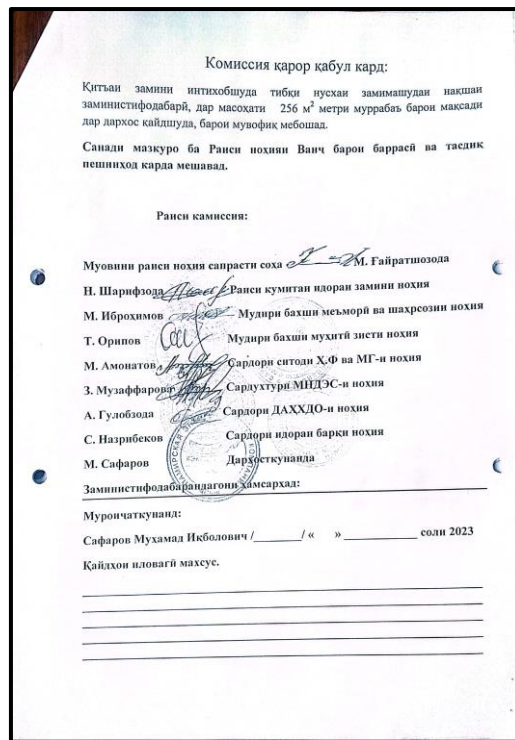 Комиссия қарор қабул кард:
Қитъаи замини интихобшуда тибқи нусхаи замимашудаи нақшаи
заминистифодабарӣ, дар масоҳати 256 м² метри мурраbаъ барои мақсади
дар дархос қайдшуда, барои мувофиқ мебошад.
Санади мазкуро ба Раиси ноҳияи Ванҷ барои баррасӣ ва тасдиқ
пешниҳод карда мешавад.
Раиси камиссия:
Муовини раиси ноҳия сапрасти соҳа М. Ғайратшозода
Н. Шарифзода Раиси кумитаи идораи замини ноҳия
М. Иброҳимов Мудири бахши меъморӣ ва шаҳрсозии ноҳия
Т. Орипов Мудири бахши муҳитӣ зисти ноҳия
М. Амонатов Сардори ситоди Ҳ.Ф ва МГ-и ноҳия
З. Музаффаров Сардухтури МНДЭС-и ноҳия
А. Гулобзода Сардори ДАХХДО-и ноҳия
С. Назрибеков Сардори идораи барқи ноҳия
М. Сафаров Дархосткунанда
Заминистифодабарандагони ҳамсарҳад:
Муроҷаткунанд:
Сафаров Мухамад Иқболович /________/ « » ____________ соли 2023
Қайдҳои иловагӣ махсус.